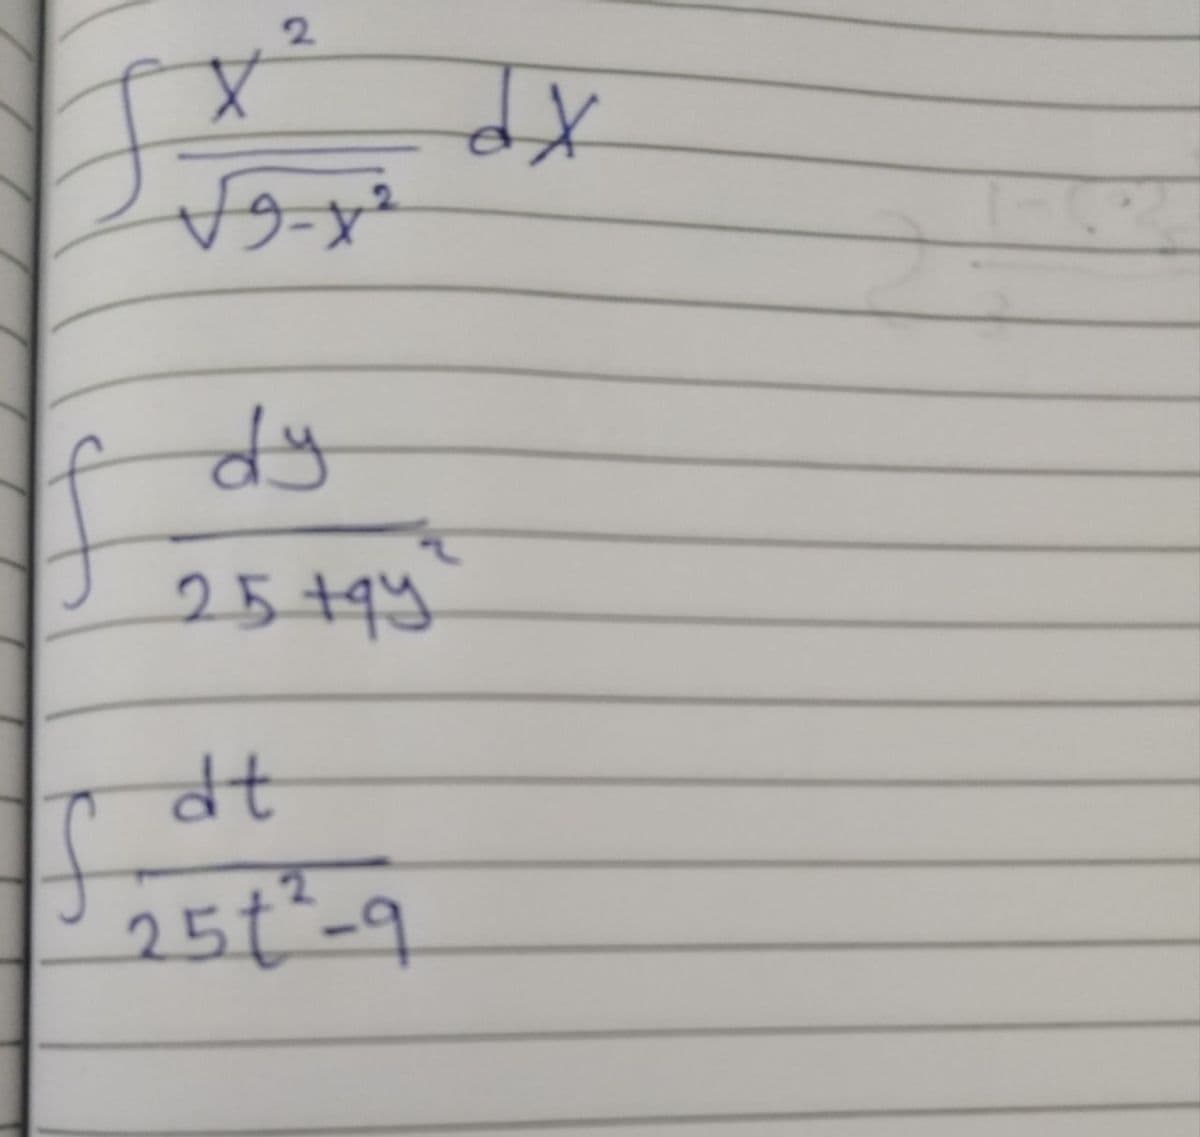 ∫ x² / √9-x² dx
∫ dy / 25+9y²
∫ dt / 25t²-9